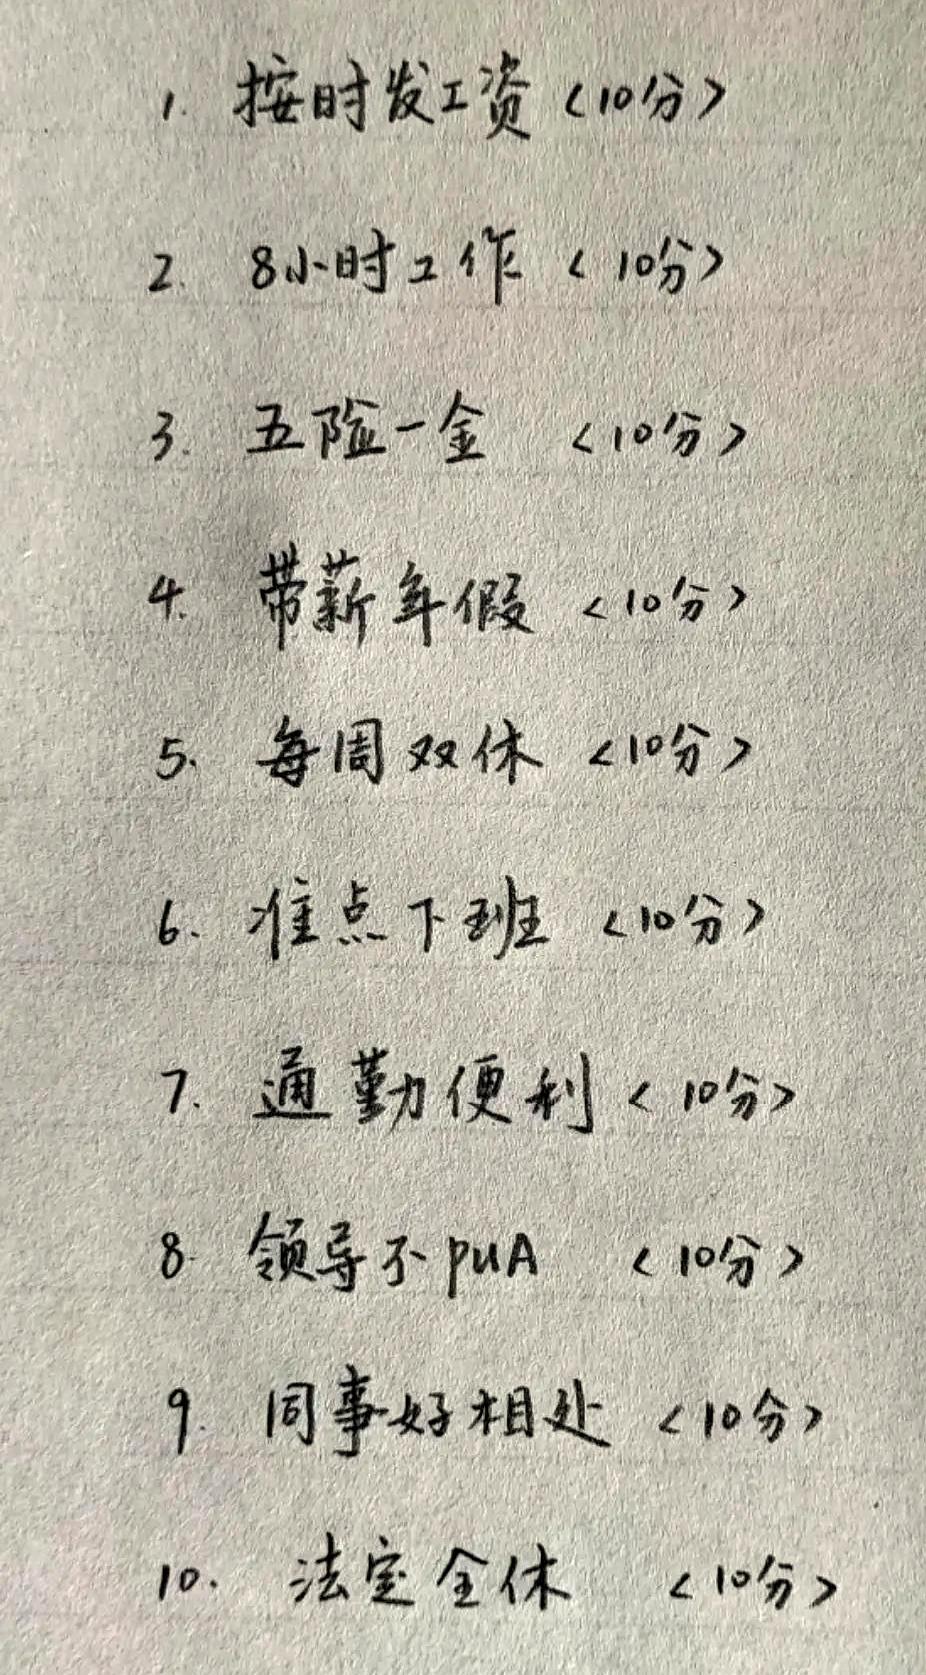 1. 按时发工资<10分>
2. 8小时工作<10分>
3. 五险一金<10分>
4. 带薪年假<10分>
5. 每周双休<10分>
6. 准点下班<10分>
7. 通勤便利<10分>
8. 领导不PUA<10分>
9. 同事好相处<10分>
10. 法定全休<10分>